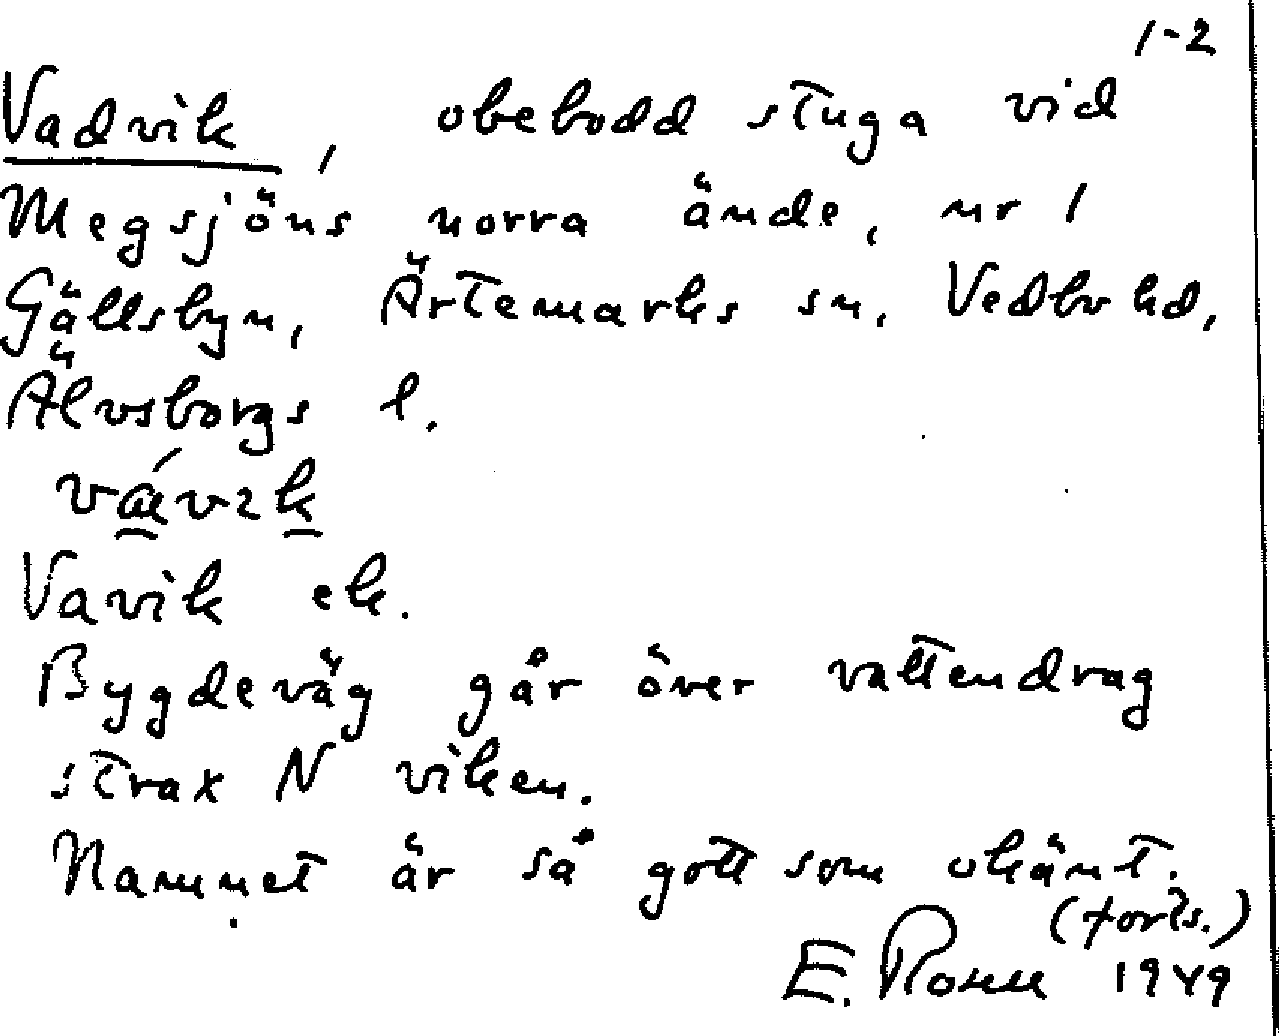 1-2
Vadvik, obebodd stuga vid
Megsjöns norra ände, nr 1
Gällsbyn, Ärtemarks sn. Vedbo hd,
Älvsborgs l.
Vavik ek.
Bygdeväg går över vattendrag
strax N viken.
Namnet är så gott som okänt.
(forts.)
E. Rosell 1949